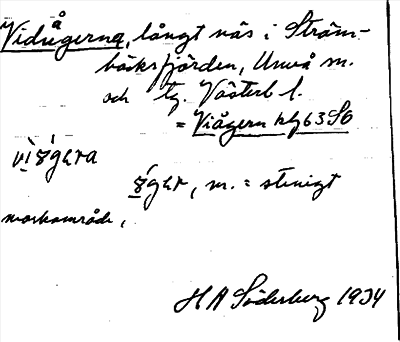 Vidågerna, långt näs i Ström-
bäcksfjärden, Umeå sn.
och tg. Västerb l.
= Viågern hg 63 S6
m. = stenigt
markområde,
H A Söderberg 1934